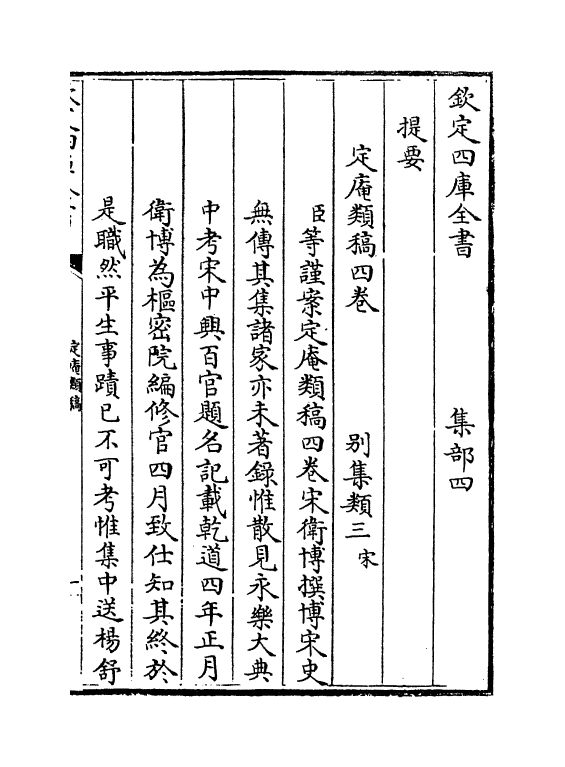 欽定四庫全書　集部四
提要
定庵類稿四卷　别集類三宋
臣等謹案定庵類稿四卷宋衛博撰博宋史
無傳其集諸家亦未著録惟散見永樂大典
中考宋中興百官題名記載乾道四年正月
衛博為樞密院編修官四月致仕知其終於
是職然平生事蹟已不可考惟集中送楊舒
定庵類稿